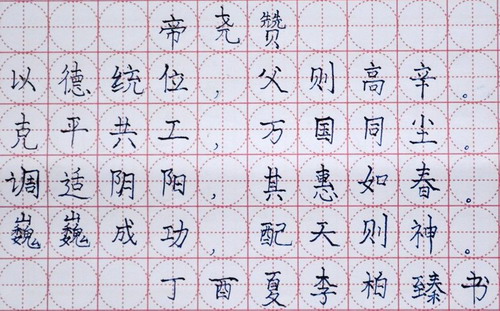 帝尧赞
以德统位，父则高辛。
克平共工，万国同尘。
调适阴阳，其惠如春。
巍巍成功，配天则神。
丁酉夏李柏臻书